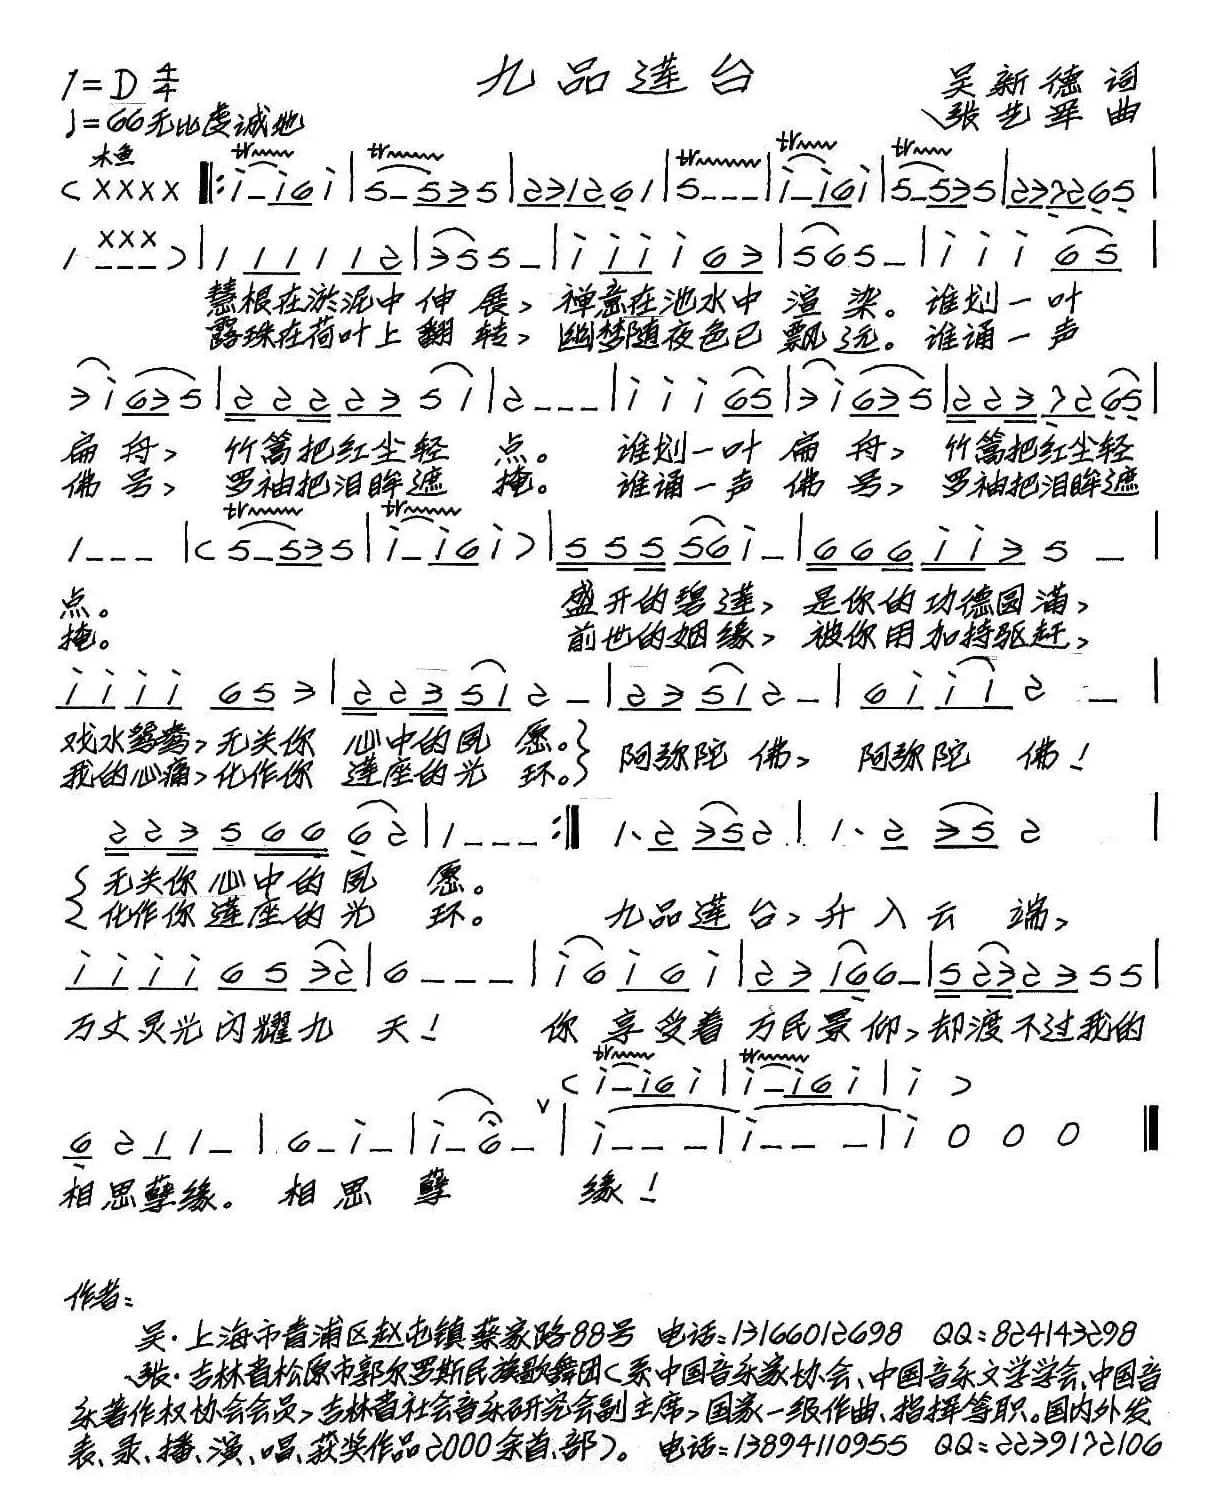 九品莲台
1=D 4/4
吴新德 词
♩=66 无比虔诚地
张艺军 曲
木鱼
tr tr tr tr tr
( X X X X ‖: i - i 6 i | 5 - 5 3 5 | 2 3 1 2 6 1 | 5 - - - | i - i 6 i | 5 - 5 3 5 | 2 3 7 2 6 5 |
X X X
1 - - - ) | 1 1 1 1 1 2 | 3 5 5 - | i i i i 6 3 | 5 6 5 - | i i i 6 5 |
慧根在淤泥中伸展, 禅意在池水中渲染。谁划一叶
露珠在荷叶上翻转, 幽梦随夜色已飘远。谁诵一声
3 i 6 3 5 | 2 2 2 2 3 5 i | 2 - - - | i i i 6 5 | 3 i 6 3 5 | 2 2 3 7 2 6 5 |
扁舟, 竹篙把红尘轻点。谁划一叶扁舟, 竹篙把红尘轻
佛号, 罗袖把泪眸遮掩。谁诵一声佛号, 罗袖把泪眸遮
tr tr
1 - - - | ( 5 - 5 3 5 | i - i 6 i ) | 5 5 5 5 6 i - | 6 6 6 i i 3 5 - |
点。 盛开的碧莲, 是你的功德圆满,
掩。 前世的姻缘, 被你用加持驱赶,
i i i i 6 5 3 | 2 2 3 5 1 2 - | 2 3 5 1 2 - | 6 i i i 2 - |
戏水鸳鸯, 无关你心中的夙愿。} 阿弥陀佛, 阿弥陀佛!
我的心痛, 化作你莲座的光环。}
2 2 3 5 6 6 6 2 | 1 - - - :‖ 1、2 3 5 2 | 1、2 3 5 2 |
{ 无关你心中的夙愿。
化作你莲座的光环。 九品莲台, 升入云端,
i i i i 6 5 3 2 | 6 - - - | i 6 i 6 i | 2 3 1 6 6 - | 5 2 3 2 3 5 5 |
万丈灵光闪耀九天! 你享受着万民景仰, 却渡不过我的
tr tr
( i - i 6 i | i - i 6 i | i )
6 2 1 1 - | 6 - i - | i - 6 - ∨ | i - - - | i - - - | i 0 0 0 ‖
相思孽缘。相思孽缘!
作者:
吴·上海市青浦区赵屯镇蔡家路88号 电话:13166012698 QQ:824143298
张·吉林省松原市郭尔罗斯民族歌舞团(系中国音乐家协会、中国音乐文学学会、中国音
乐著作权协会会员, 吉林省社会音乐研究会副主席, 国家一级作曲、指挥等职。国内外发
表、录、播、演、唱、获奖作品2000余首、部)。电话:13894110955 QQ:2239172106